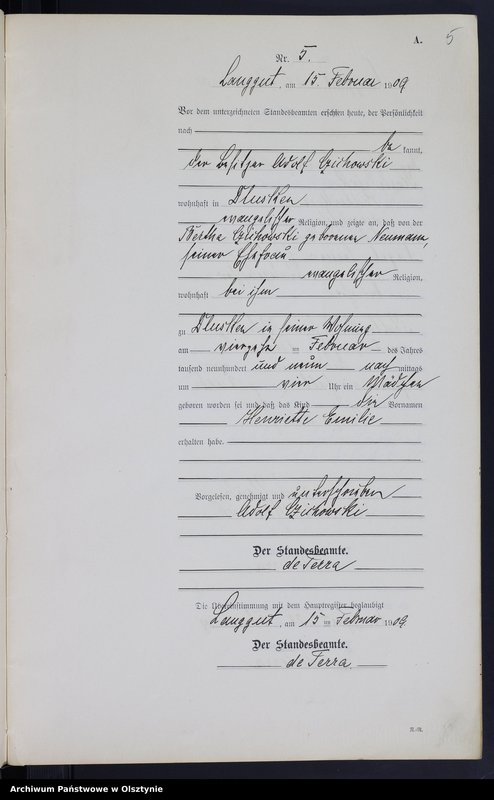 A. 5
Nr. 5.
Langgut, am 15. Februar 1909
Vor dem unterzeichneten Standesbeamten erschien heute, der Persönlichkeit
nach
be kannt,
der Besitzer Adolf Czichowski
wohnhaft in Dlusken
evangelischer Religion, und zeigte an, daß von der
Bertha Czichowski geborenen Neumann,
seiner Ehefrau
evangelischer Religion,
wohnhaft bei ihm
zu Dlusken in seiner Wohnung
am vierzehn ten Februar des Jahres
tausend neunhundert und neun nach mittags
um vier Uhr ein Mädchen
geboren worden sei und daß das Kind die Vornamen
Henriette Emilie
erhalten habe.
Vorgelesen, genehmigt und unterschrieben
Adolf Czichowski
Der Standesbeamte.
de Terra
Die Übereinstimmung mit dem Hauptregister beglaubigt
Langgut, am 15 ten Februar 1909
Der Standesbeamte.
de Terra
Archiwum Państwowe w Olsztynie